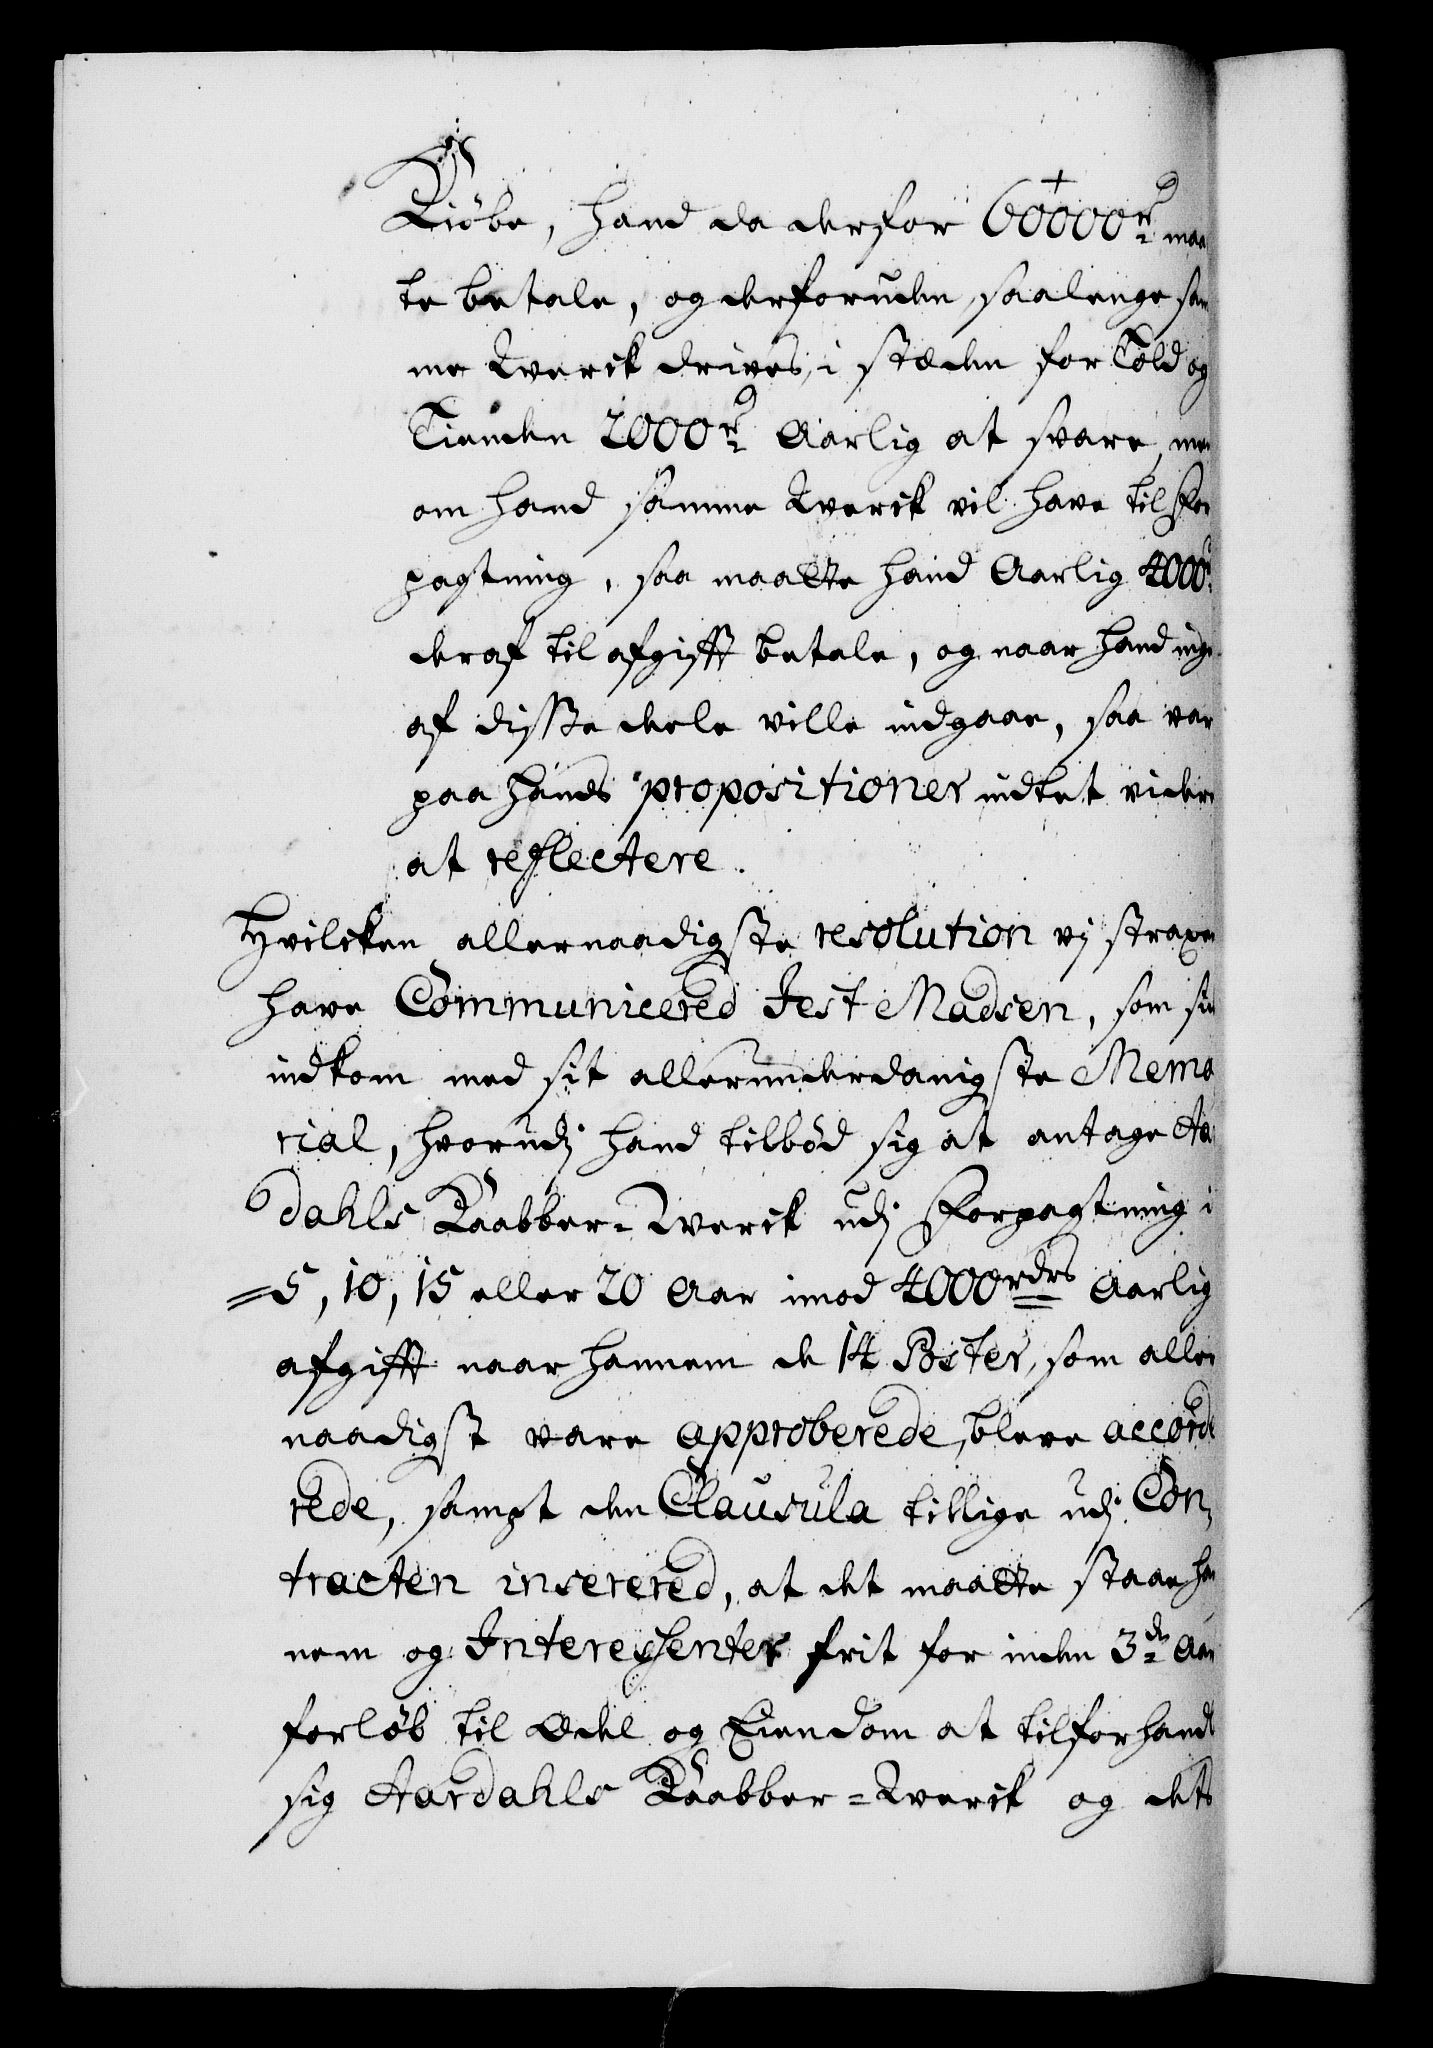 Kiøbe, hand da derfor 60000 rd maa
te betale, og derforuden, saalenge sam
me Kverck drives, i stæden for Told og
Tienden 2000 rd Aarlig at svare, men
om hand samme Kverck vil have til For
pagtning, saa maatte hand Aarlig 4000 rd
deraf til afgifft betale, og naar hand inge
af disse dele ville indgaae, saa var
paa hands propositioner indtet videre
at reflectere.
Hvilcken allernaadigste resolution vj straxen
have Communicered Jest Madsen, som si
indkom med sit allerunderdanigste Memo
rial, hvorudj hand tilbød sig at antage Aa
dahls Kaabber-Kverck udj Forpagtning i
=5, 10, 15 eller 20 Aar imod 4000 rdrs Aarlig
afgifft naar hannem de 14 Poster, som aller
naadigst vare approberede, bleve accorde
rede, sampt den Clausula tillige udj Con,
tracten inserered, at det maatte staae han
nem og Interessenter frit for inden 3de Aar
forløb til Odel og Eiendom at tilforhandl
sig Aardahls Kaabber-Kverck og dets